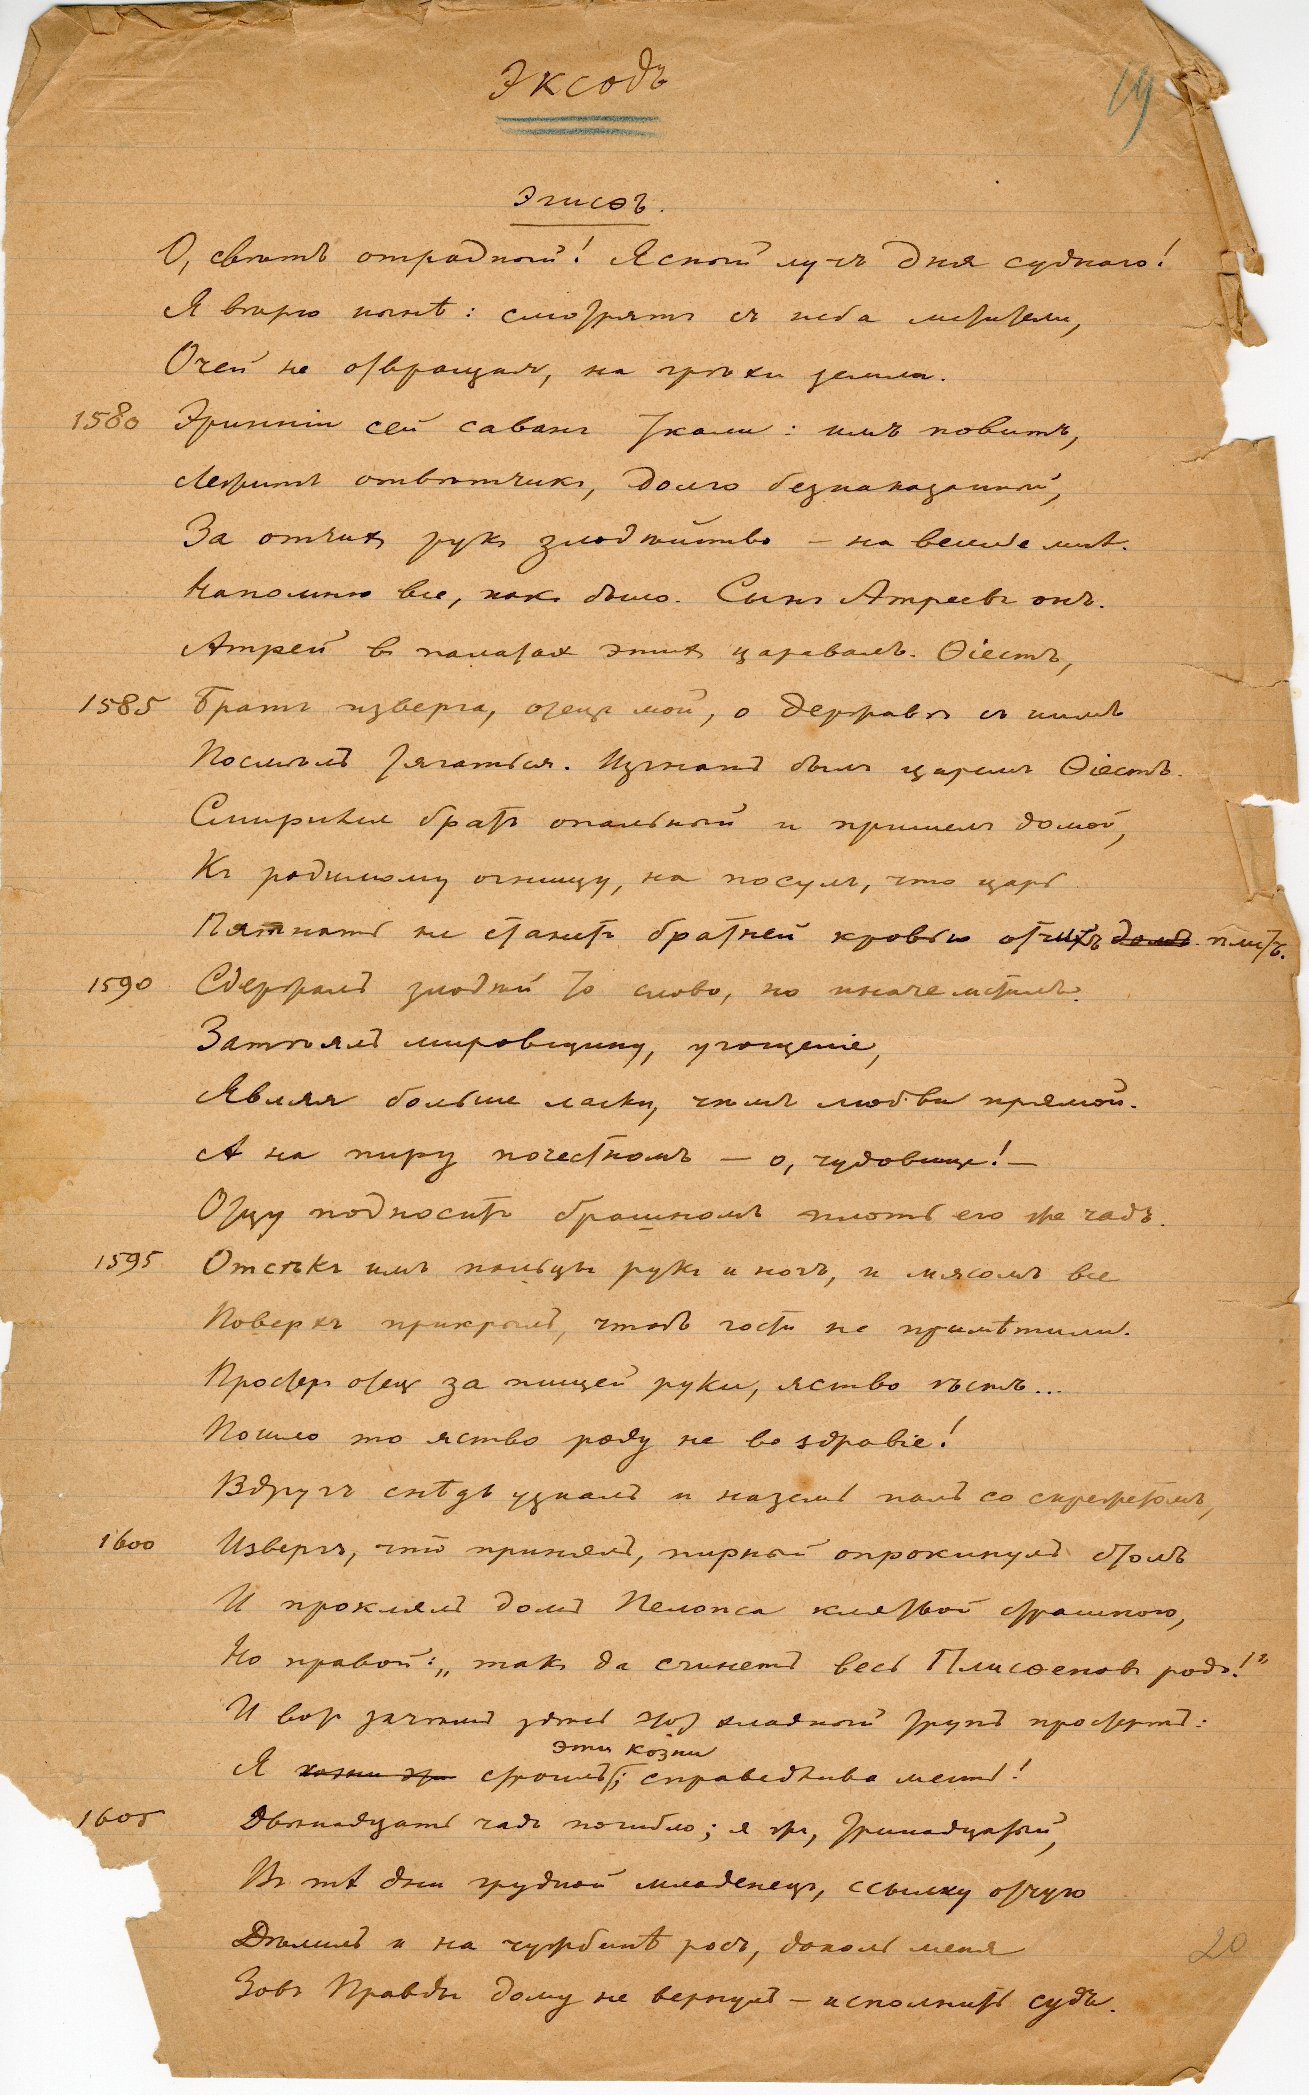 Эксодъ
19
Эгисѳъ.
О, свѣтъ отрадный! Ясный лучъ дня суднаго!
Я вѣрю нынѣ: смотрятъ съ неба мстители,
Очей не отвращая, на грѣхи земли.
1580 Эринніи сей саванъ ткали: имъ повитъ,
Лежитъ отвѣтчикъ, долго безнаказанный,
За отчихъ рукъ злодѣйство – на веселье мнѣ.
Напомню все, какъ было. Сынъ Атреевъ онъ.
Атрей въ палатахъ этихъ царевалъ. Ѳіестъ,
1585 Братъ изверга, отецъ мой, о державѣ съ нимъ
Посмѣлъ тягаться. Изгнанъ былъ царемъ Ѳіестъ.
Смирился братъ опальный и пришелъ домой,
Къ родимому огнищу, на посулъ, что царь
Пятнать не станетъ братней кровью отчихъ домъ плитъ.
1590 Сдержалъ злодѣй то слово, но иначе мстилъ:
Затѣялъ мировщину, угощеніе,
Являя больше ласки, чѣмъ любви прямой.
А на пиру почестномъ – о, чудовище! –
Отцу подноситъ брашномъ плоть его же чадъ.
1595 Отсѣкъ имъ пальцы рукъ и ногъ, и мясомъ все
Поверхъ прикрылъ, чтобъ гости не примѣтили.
Простеръ отецъ за пищей руки, яство ѣстъ...
Пошло то яство роду не во здравіе!
Вдругъ снѣдь узналъ и наземь палъ со скрежетомъ,
1600 Извергъ, что принялъ, пирный опрокинулъ столъ
И проклялъ домъ Пелопса клятвой страшною,
Но правой: „такъ да сгинетъ весь Плисѳеновъ родъ!"
И вотъ зачѣмъ здѣсь этотъ хладный трупъ простертъ:
эти козни
Я козни эти строилъ; справедлива месть!
1605 Двѣнадцать чадъ погибло; я же, тринадцатый,
Въ тѣ дни грудной младенецъ, ссылку отчую
Дѣлилъ и на чужбинѣ росъ, доколь меня
20
Зовъ Правды дому не вернулъ – исполнить судъ.